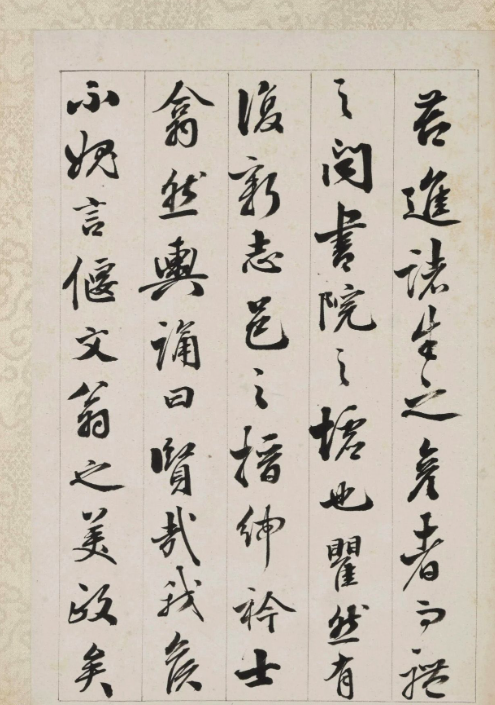 若進諸生之彥者而禮
之閔書院之墟也瞿然有
復新志邑之搢紳衿士
翕然輿誦曰賢哉我侯
不媿言偃文翁之美政矣